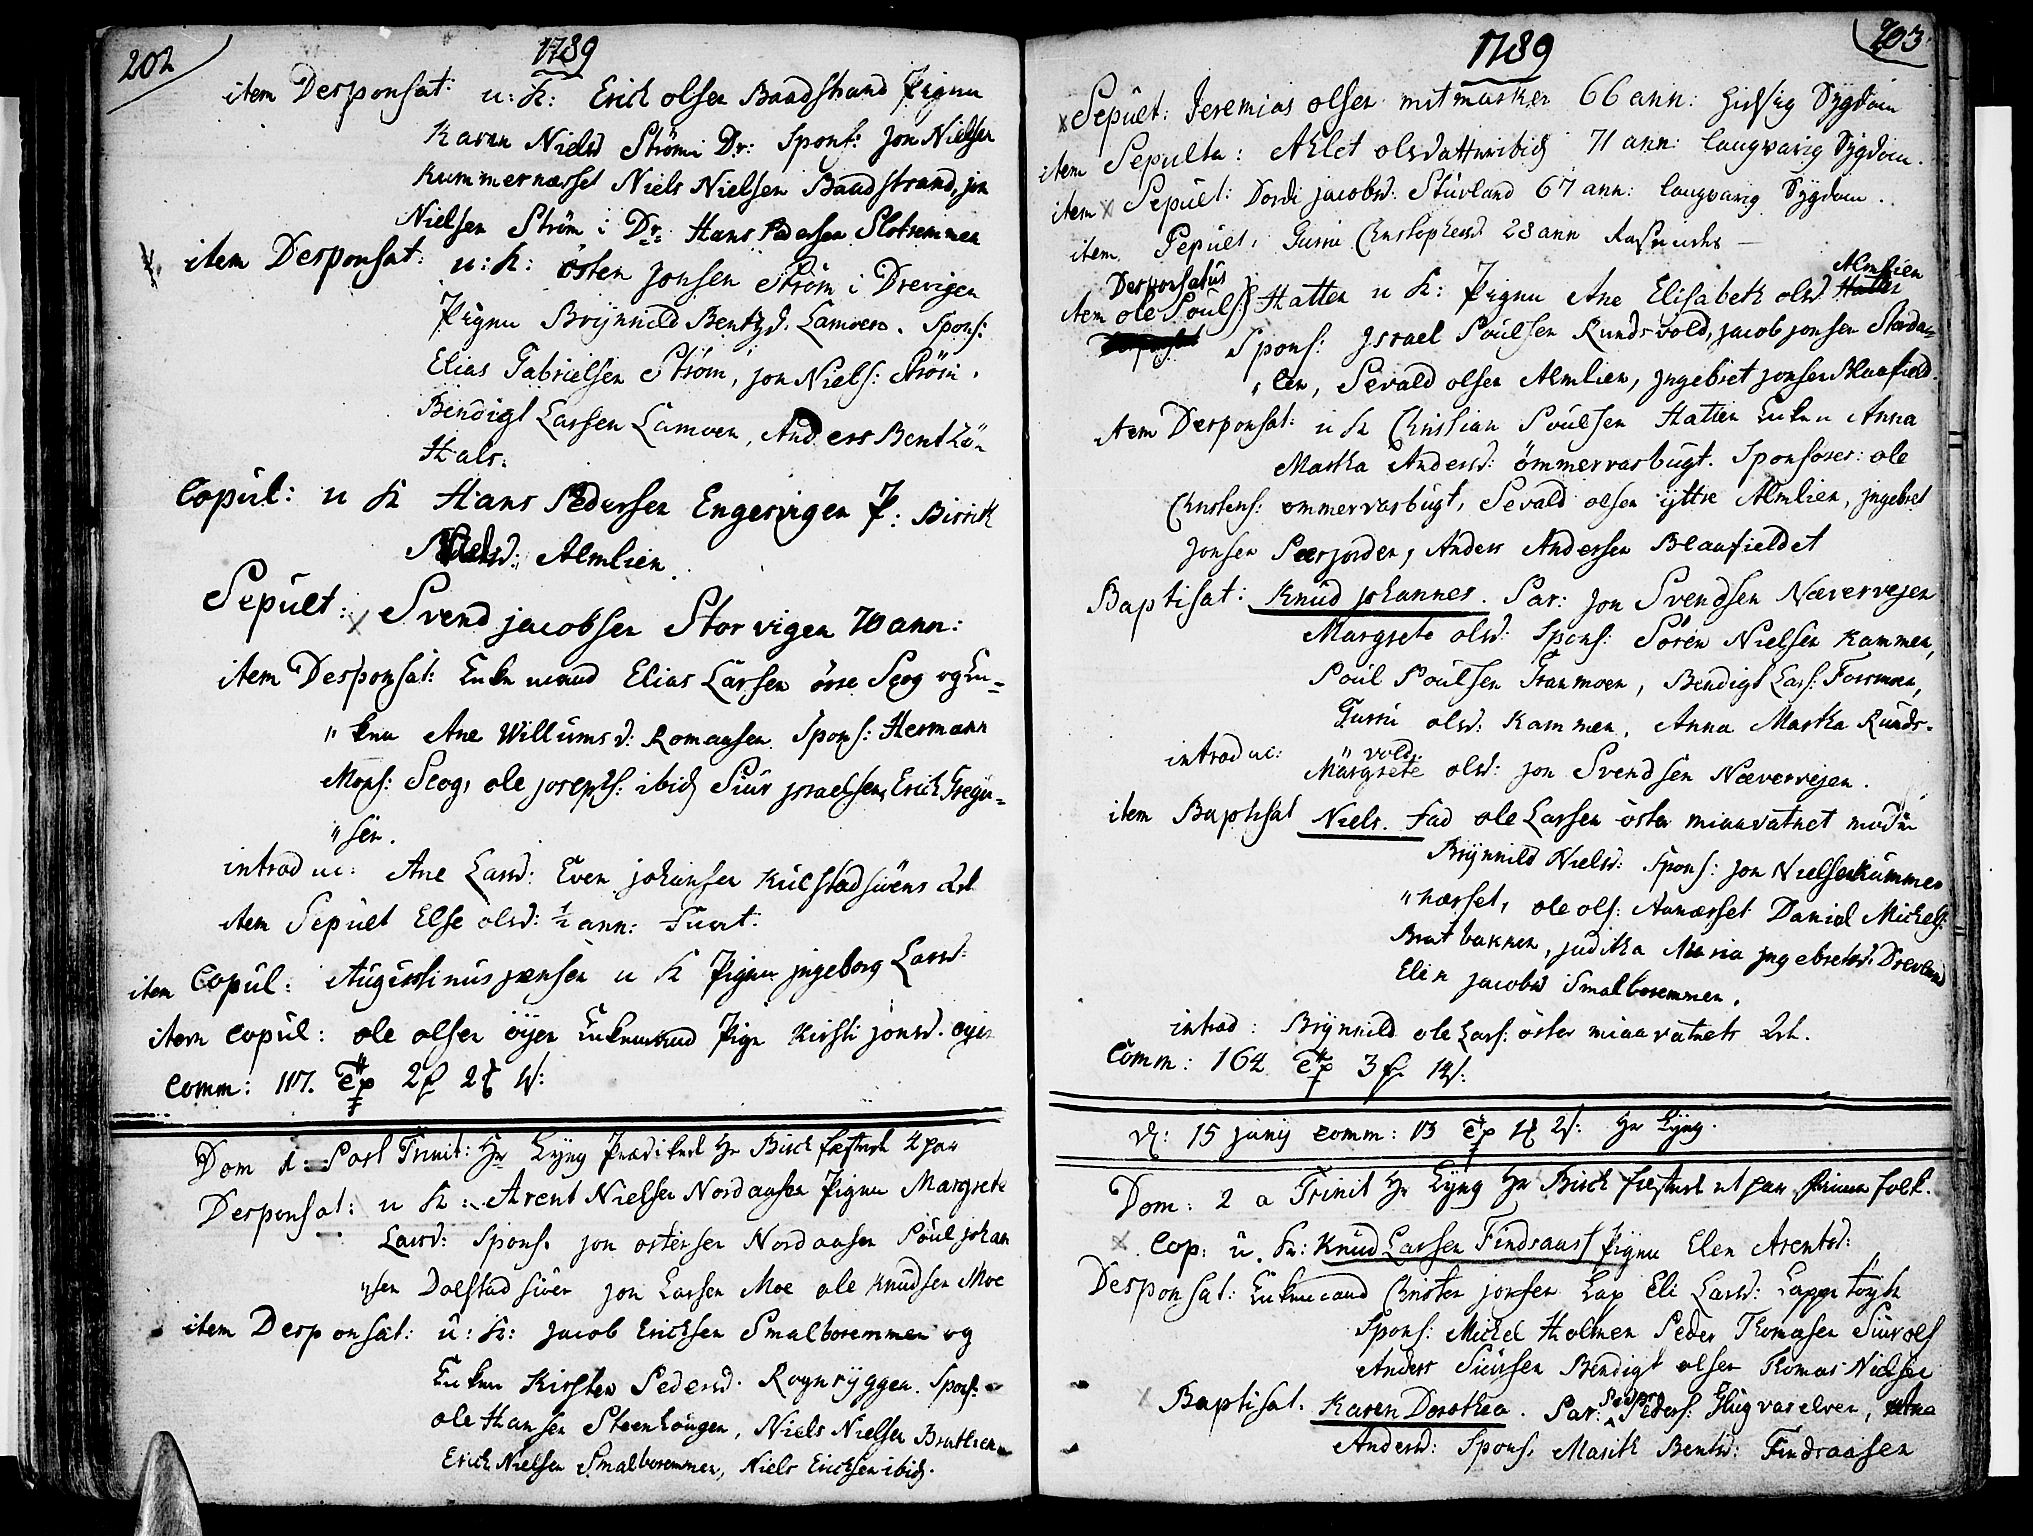 202
1789
item Desponsat: u: K: Erich olsen Baadstrand Pigen
Karen Nielsd Ström i Dr: Spons: Jon Nielsen
Kummernæsset Niels Nielsen Baadstrand, jon
Nielsen Ström i Dr: Hans Pedersen Slotremmen
item Desponsat: u: K: östen Jonsen Ström i Drevigen
Pigen Brÿnnild Bentzd. Lamoen. Spons:
Elias Gabrielsen Ström, jon Niels: Ström,
Bendigt Larsen Lamoen, Anders Bentsön
Hals.
Copul: u K Hans Pedersen Engesvigen P: Birrith
Nielsd: Almlien.
Sepult: Svend jacobsen Storvigen 70 ann:
item Desponsat: Enkemand Elias Larsen övre Scog og En-
" ken Ane Willumsd: Romaasen. Spons: Hermann
Mons: Scog, ole joseps: ibid Siur jsraelsen, Erich Gregu-
" sen.
introduc: Ane Larsd: Even johansen Kulstadsiöens
item Sepult Else olsd: ½ ann:
item Copul: Augustinus jensen u K Pigen jngeborg Larsd:
item copul: ole olsen öÿen Enkemand Pigen Kirsti jonsd.
Comm: 117.
Dom 1: Post Trinit: Hr Lÿng Prædiket Hr Birch
Desponsat: u K: Arent Nielsen Nordaasen Pigen Margrete
Larsd: Spons: jon ostensen Nordaasen Poul johan
" sen Dolstad siöen jon Larsen Moe ole Knudsen Moe
item Desponsat: u: K: Jacob Erichsen Smalbosemmen og
Enken Kirsten Pedersd. Rognrÿggen. Spons:
ole Hansen Steenhougen, Niels Nielsen Bratlien
Erich Nielsen Smalbosemmen, Niels Erichsen ibid.
203
1789
Sepult: Jeremias olsen mitmarken 66 ann: Sygdom
item Sepulta: Ahlet olsdatter ibid 71 ann: langvarig Sygdom.
item Sepult: Dordi jacobsd. Stuvland 67 ann: langvarig Sygdom.
item Sepult: Gurru Christophersd 28 ann
Desponsatus Almlien
item ole Pouls: Hatten u K: Pigen Ane Elisabeth olsd
Spons: Jsrael Poulsen Rundsvold, jacob jonsen Storda-
" len, Sevald olsen Almlien, jngebret jonsen Blaafield.
item Desponsat: u K Christian Poulsen Hatten Enken Anna
Martha Andersd: ömmervasbugt. Sponsores: ole
Christens: ommervasbugt, Sevald olsen ÿttre Almlien, jngebret
jonsen Særjorden, Anders Andersen Blaafieldet
Baptisat: Knud johannes. Par: jon Svendsen Næververjen
Margrete olsd: Spons: Sören Nielsen Kammen,
Poul Poulsen Granmoen, Bendigt Lars: Forsmoen,
Gurru olsd: Kammen, Anna Martha Runds-
" vold.
introduc: Margrete olsd: jon Svendsen Næververjen.
item Baptisat Niels. Fad ole Larsen östen miaavatnet
Brÿnnild Nielsd: Spons: jon Nielsen Kummer
" næsset, ole ols: Aanæsset Daniel Michels:
Bratbakken, juditha Maria jngebretsd. Drevland
Elen jacobsd Smalbosemmen.
introd: Brÿnnild ole Lars: östen miaavatnets
Comm: 164
d: 15 junij comm: 13 Hr Lÿng.
Dom: 2 a Trinit Hr Lÿng Hr Birch folk.
Cop: u. K: Knud Larsen Findraas Pigen Elen Arentsd:
Desponsat: Enkemand Christen jonsen Lap Eli Larsd:
Spons: Michel Holmen Peder Thomasen Siur ols
Anders Siursen Bendigt olsen Thomas Nielsen
Baptisat: Karen Dorothea. Par: Peder Peders: Glugvaselven,
Andersd: Spons: Marith Bentsd: Findraasen